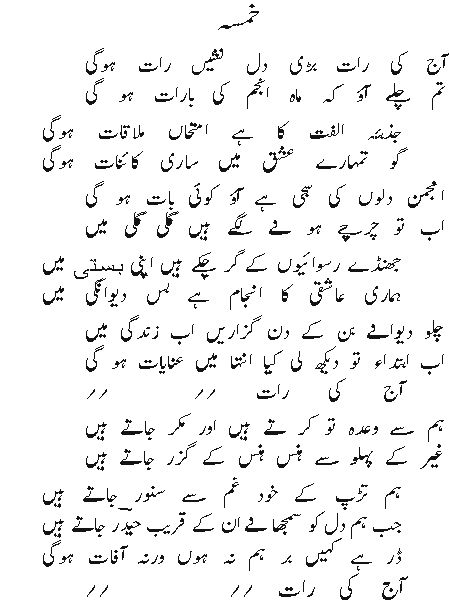 خمسہ
آج کی رات بڑی دل نشیں رات ہوگی
تم چلے آؤ کہ ماہ انجم کی بارات ہو گی
جذبئہ الفت کا ہے امتحاں ملاقات ہوگی
گو تمہارے عشق میں ساری کائنات ہوگی
انجمن دلوں کی سجی ہے آؤ کوئی بات ہو گی
اب تو چرچے ہو نے لگے ہیں گلی گلی میں
جھنڈے رسوائیوں کے گر چکے ہیں اپنی بستی میں
ہماری عاشقی کا انجام ہے بس دیوانگی میں
چلو دیوانے بن کے دن گزاریں اب زندگی میں
اب ابتداء تو دیکھ لی کیا انتہا میں عنایات ہو گی
آج کی رات // //
ہم سے وعدہ تو کر تے ہیں اور مکر جاتے ہیں
غیر کے پہلو سے ہنس ہنس کے گزر جاتے ہیں
ہم تڑپ کے خود غم سے سنور جاتے ہیں
جب ہم دل کو سمجھانے ان کے قریب حیدر جاتے ہیں
ڈر ہے کہیں بر ہم نہ ہوں ورنہ آفات ہوگی
آج کی رات // //